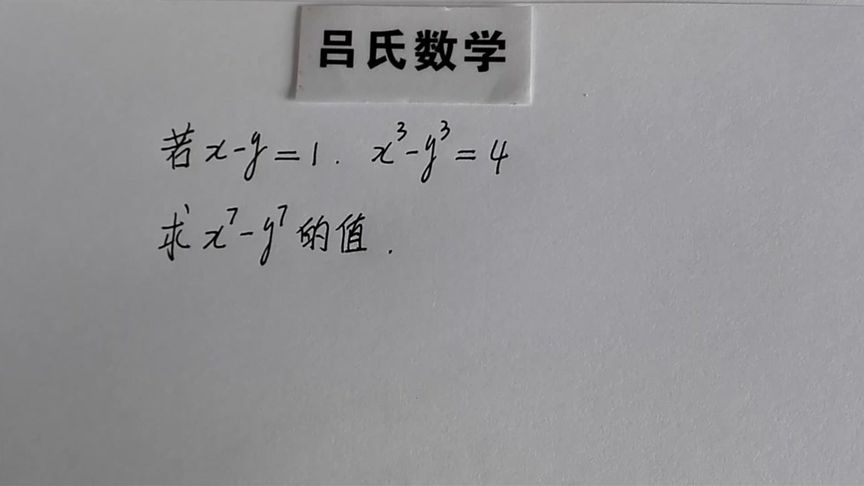 吕氏数学
若 x-y=1. x³-y³=4
求 x⁷-y⁷ 的值.